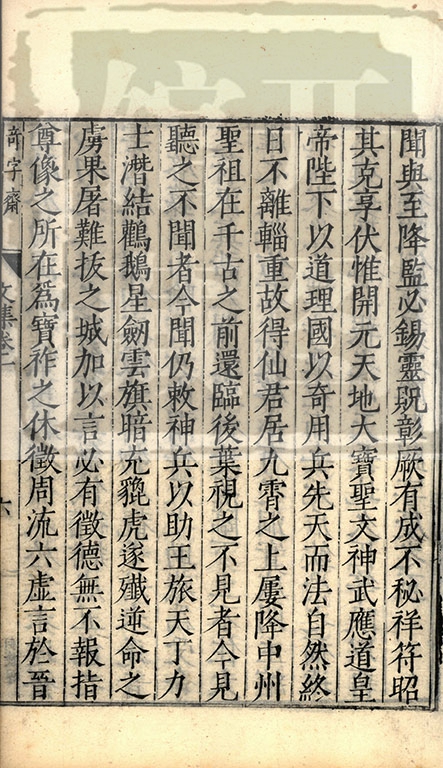 聞與至降監必錫靈貺彰厥有成不秘祥符昭
其克享伏惟開元天地大寶聖文神武應道皇
帝陛下以道理國以奇用兵先天而法自然終
日不離輜重故得仙君居九霄之上屢降中州
聖祖在千古之前還臨後葉視之不見者今見
聽之不聞者今聞仍敕神兵以助王旅天丁力
士潛結鸛鵝星劒雲旗暗充貔虎遂殲逆命之
虜果屠難拔之城加以言必有徵德無不報指
尊像之所在爲寶祚之休徵周流六虛言於晉
奇字齋
文集卷二
六